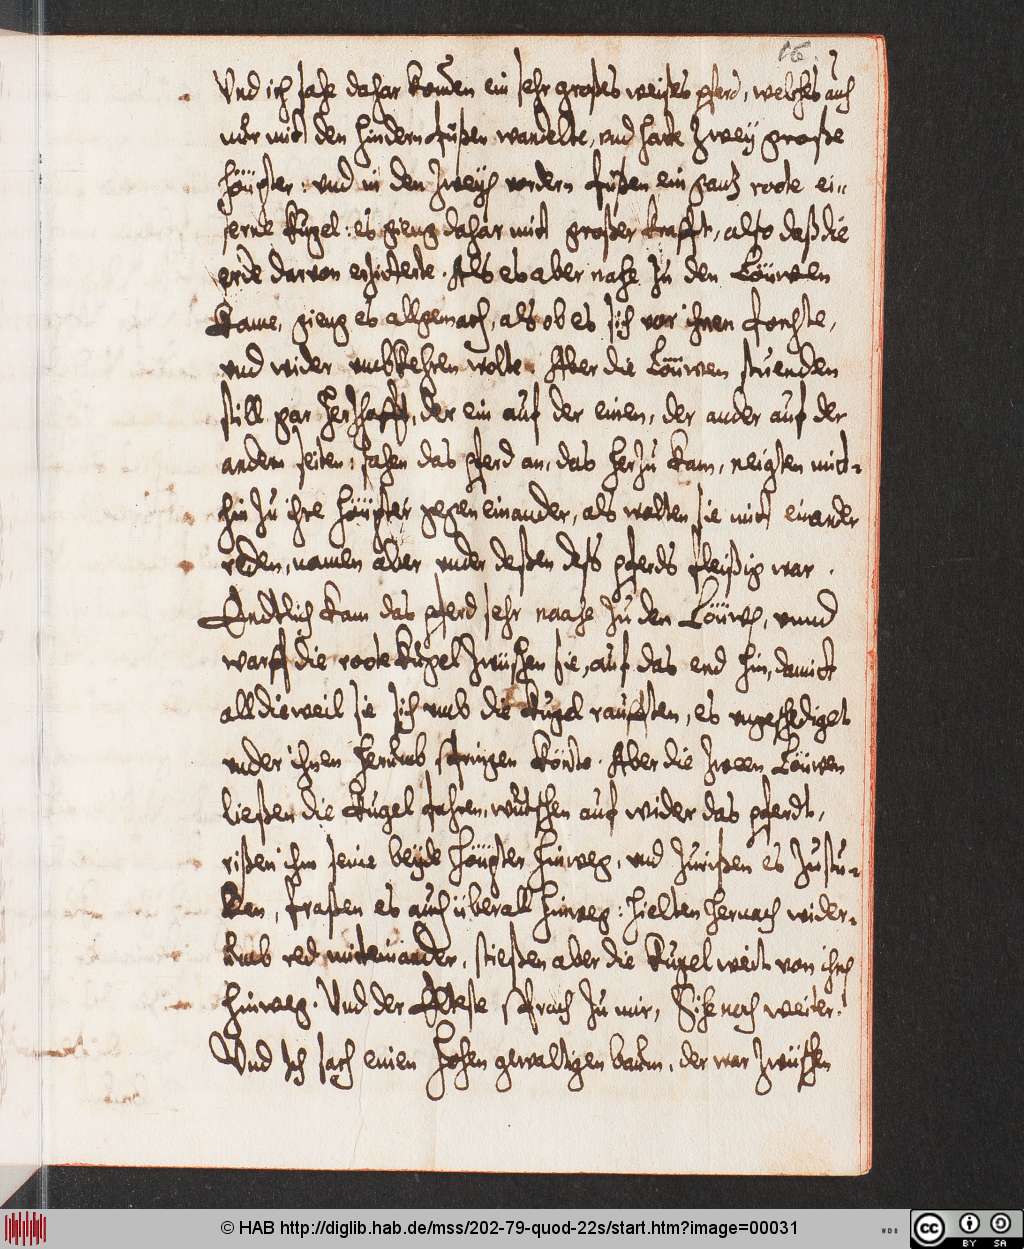 16.
Und ich sahe dahar kom̅en ein sehr großes weißes pferd, welches auch
nůr mitt den hindern fůßen wandelte, vnd hatte zweÿ große
höüpter: vnd in den zweÿ vordern fůßen ein gantz roote ei-
serne kugel: es gieng dahar mitt großer krafft, also daß die
erde darvon erzitterte. Als es aber nahe zu den Löüwen
kame, gieng es allgemach, als ob es sich vor ihnen forchte,
vnd wider vmbkehren wolte. Aber die Löüwen stuenden
still gar hertzhafft, der ein auf der einen, der ander auf der
andern seiten: sahen das pferd an, das herzu kam, neigten mitt-
hin zu ihre höüpter gegen einander, als wolten sie mitt einander
reden, namen aber vnder deßen deß pferds fleißig war.
Endtlich kam das pferd sehr naahe zu den Löüwen, vnnd
warff die roote kugel zwüschen sie, auf das end hin, damitt
all die weil sie sich vmb die kugel raufften, es vngeschediget
vnder ihnen herumb springen könte. Aber die zween Löüwen
ließen die kugel fahren, wůtschen auf wider das pferdt,
rißen ihm seine beÿde höüpter hinweg, vnd zurißen es zu stu-
cken, fraßen es auch überall hinweg: hielten hernach wider-
umb red mitteinander, stießen aber die kugel weit von ihnen
hinweg. Und der Elteste sprach zu mir, Sihe noch weiter.
Und Ich sach einen hohen gewaltigen baum, der war zwüschen
© HAB http://diglib.hab.de/mss/202-79-quod-22s/start.htm?image=00031
WDB
cc BY SA